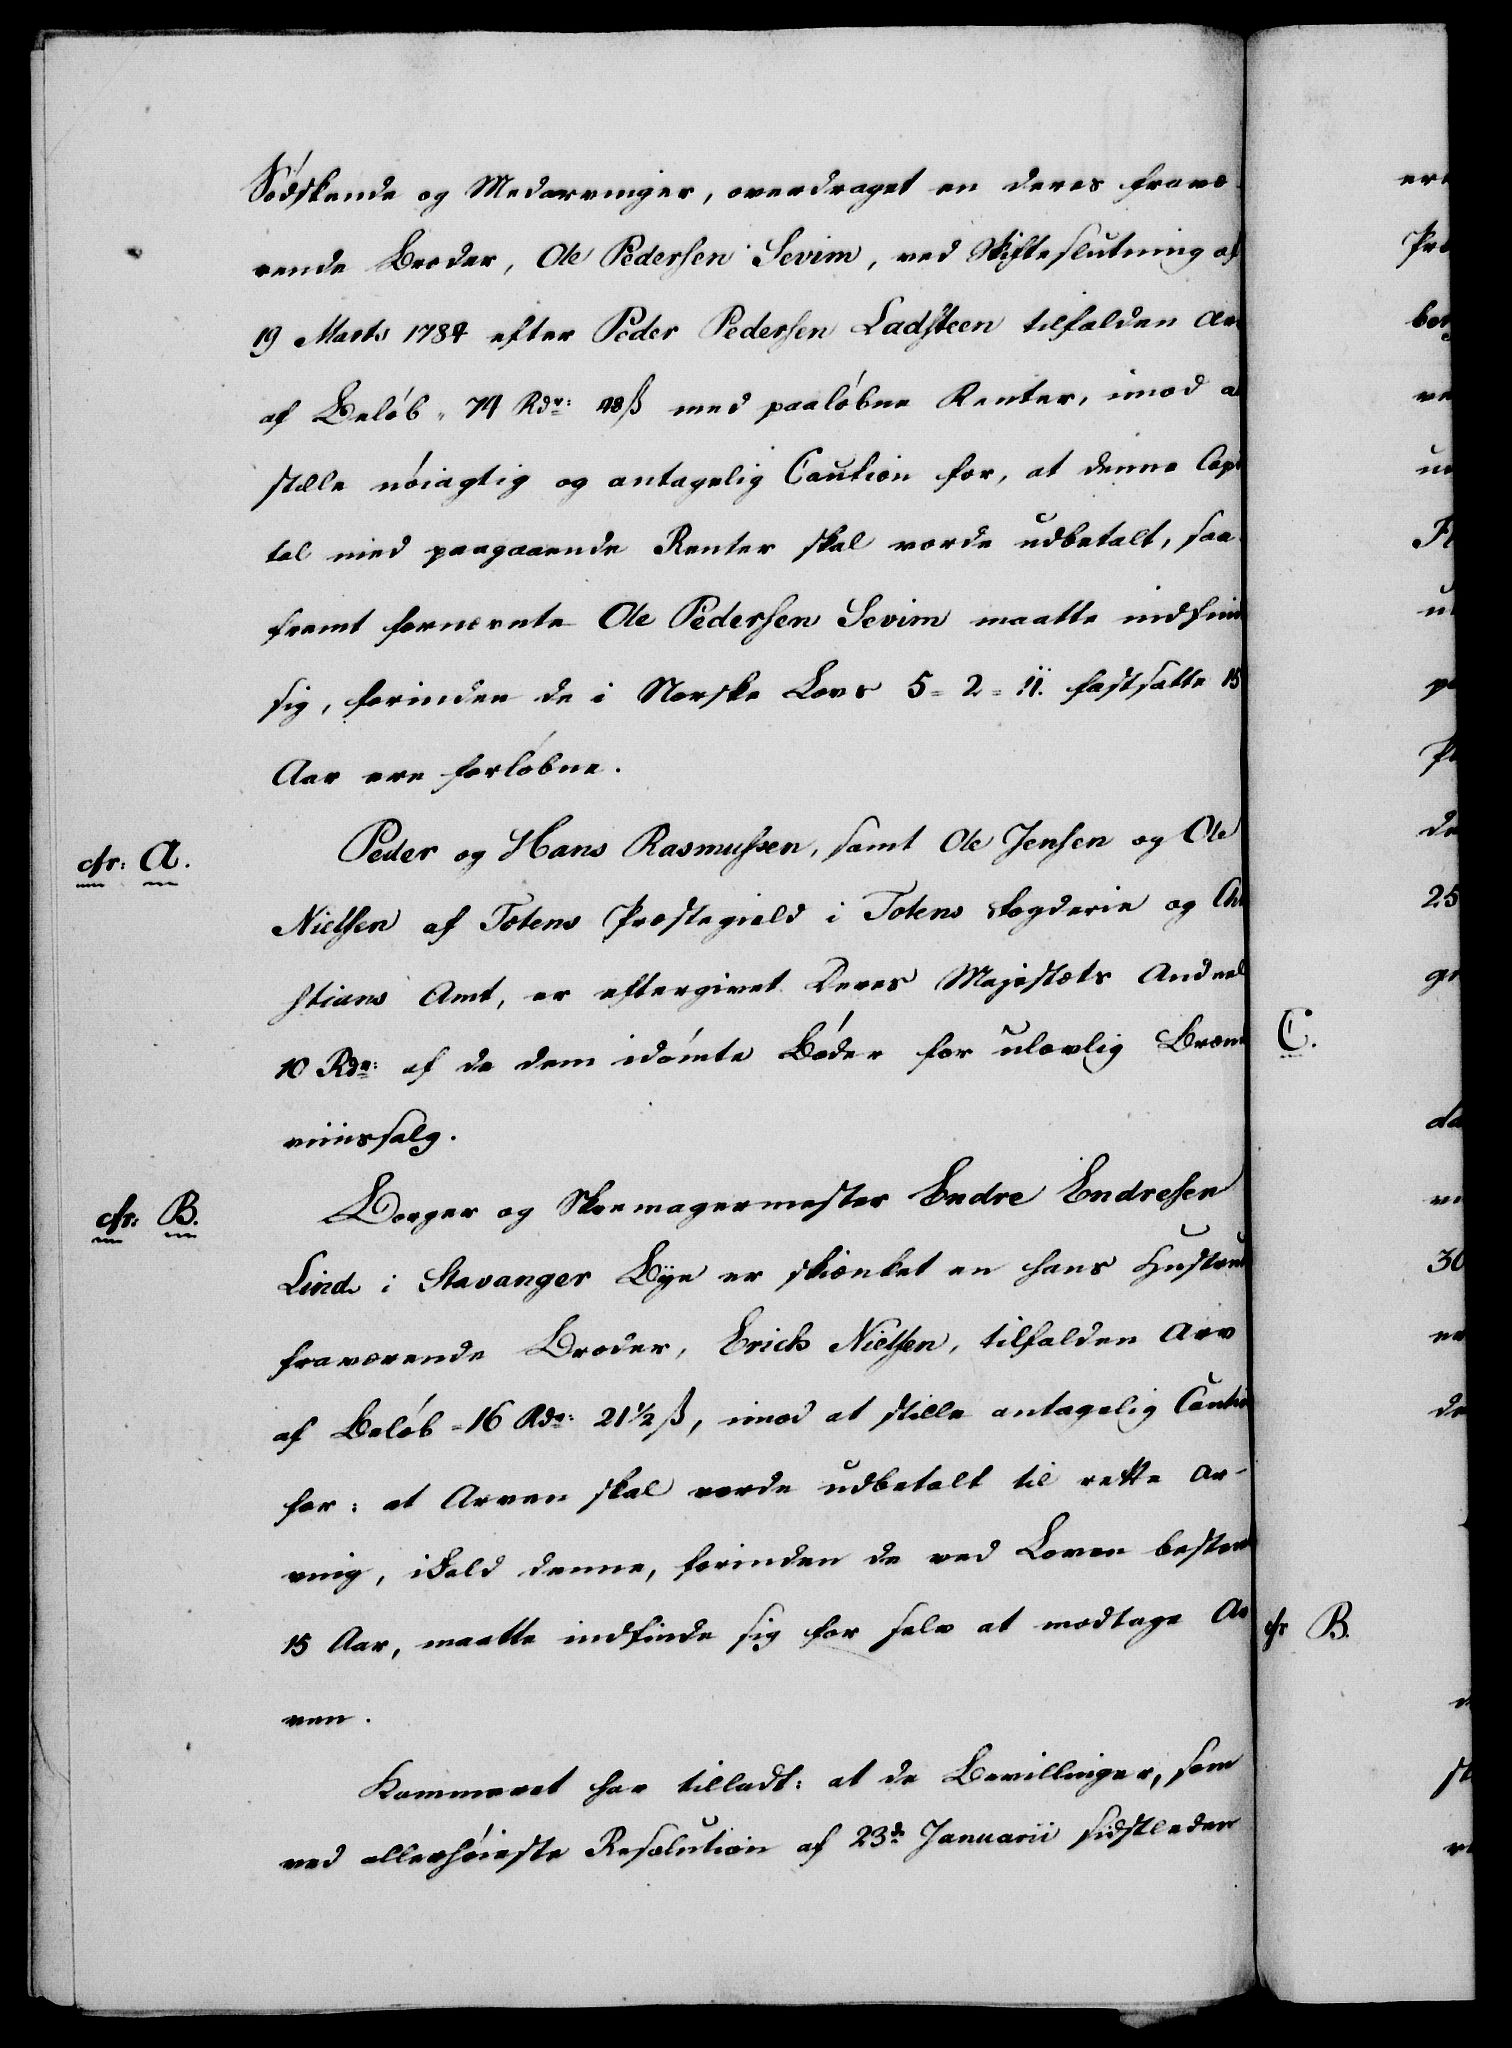 Södskende og Medarvinger, overdraget en deres fravæ-
rende Broder, Ole Pedersen Sevim, ved Skifteslutning af
19 Marts 1784 efter Peder Pedersen Ladsteen tilfalden Arv
af Belób 74 Rdr: 48 ß med paalóbne Renter, imod a
stille nóiagtig og antagelig Caution for, at denne Capi
tal med paagaaende Renter skal vorde udbetalt, saa-
fremt fornævnte Ole Pedersen Sevim maatte indfin
sig, forinden de i Norske Lovs 5-2-11. fastsatte 15
Aar ere forlóbne.
cfr: A.
Peder og Hans Rasmussen, samt Ole Jensen og Ole
Nielsen af Totens Præstegield i Totens Fogderie og Chri
stians Amt, er eftergivet Deres Majestæts Andeel
10 Rdr: af de dem idómte Bóder for ulovlig Brænde
viinssalg.
cfr: B.
Borger og Skoemagermester Endre Endresen
Lind i Stavanger Bye er skienket en hans Hustrues
fraværende Broder, Erich Nielsen, tilfalden Arv
af Belób 16 Rdr: 21 1/2 ß, imod at stille antagelig Cautio
for: at Arven skal vorde udbetalt til rette Ar-
ving, ifald denne, forinden de ved Loven bestem
15 Aar, maatte indfinde sig for selv at modtage Ar
ven.
Kammeret har tilladt: at de Bevillinger, som
ved allerhóieste Resolution af 23de Januarii sidstleden
C.
cfr B.
25
30